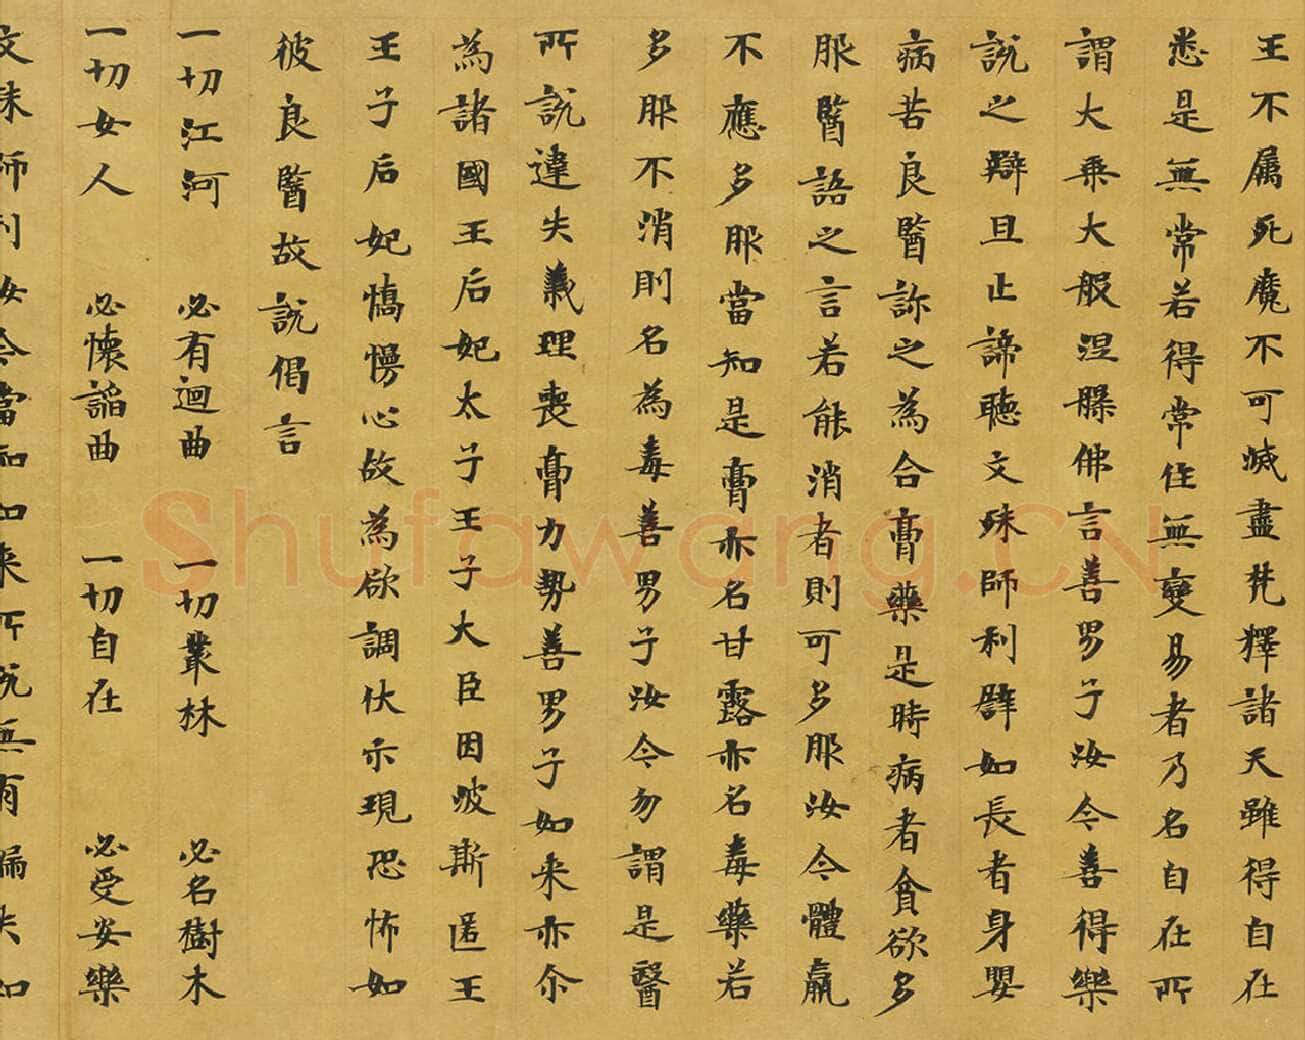 王不属死魔不可滅盡梵釋諸天雖得自在
悉是無常若得常住無變易者乃名自在所
謂大乘大般涅槃佛言善男子汝今善得樂
說之辯且止諦聽文殊師利譬如長者身嬰
病苦良醫診之為合膏藥是時病者貪欲多
服醫語之言若能消者則可多服汝今體羸
不應多服當知是膏亦名甘露亦名毒藥若
多服不消則名為毒善男子汝今勿謂是醫
所說違失義理喪膏力勢善男子如来亦尒
為諸國王后妃太子王子大臣因波斯匿王
王子后妃憍慢心故為欲調伏示現恐怖如
彼良醫故說偈言
一切江河 必有迴曲 一切叢林 必名樹木
一切女人 必懷諂曲 一切自在 必受安樂
文殊師利汝今當知如来所說無有漏失如
Shufawang.CN